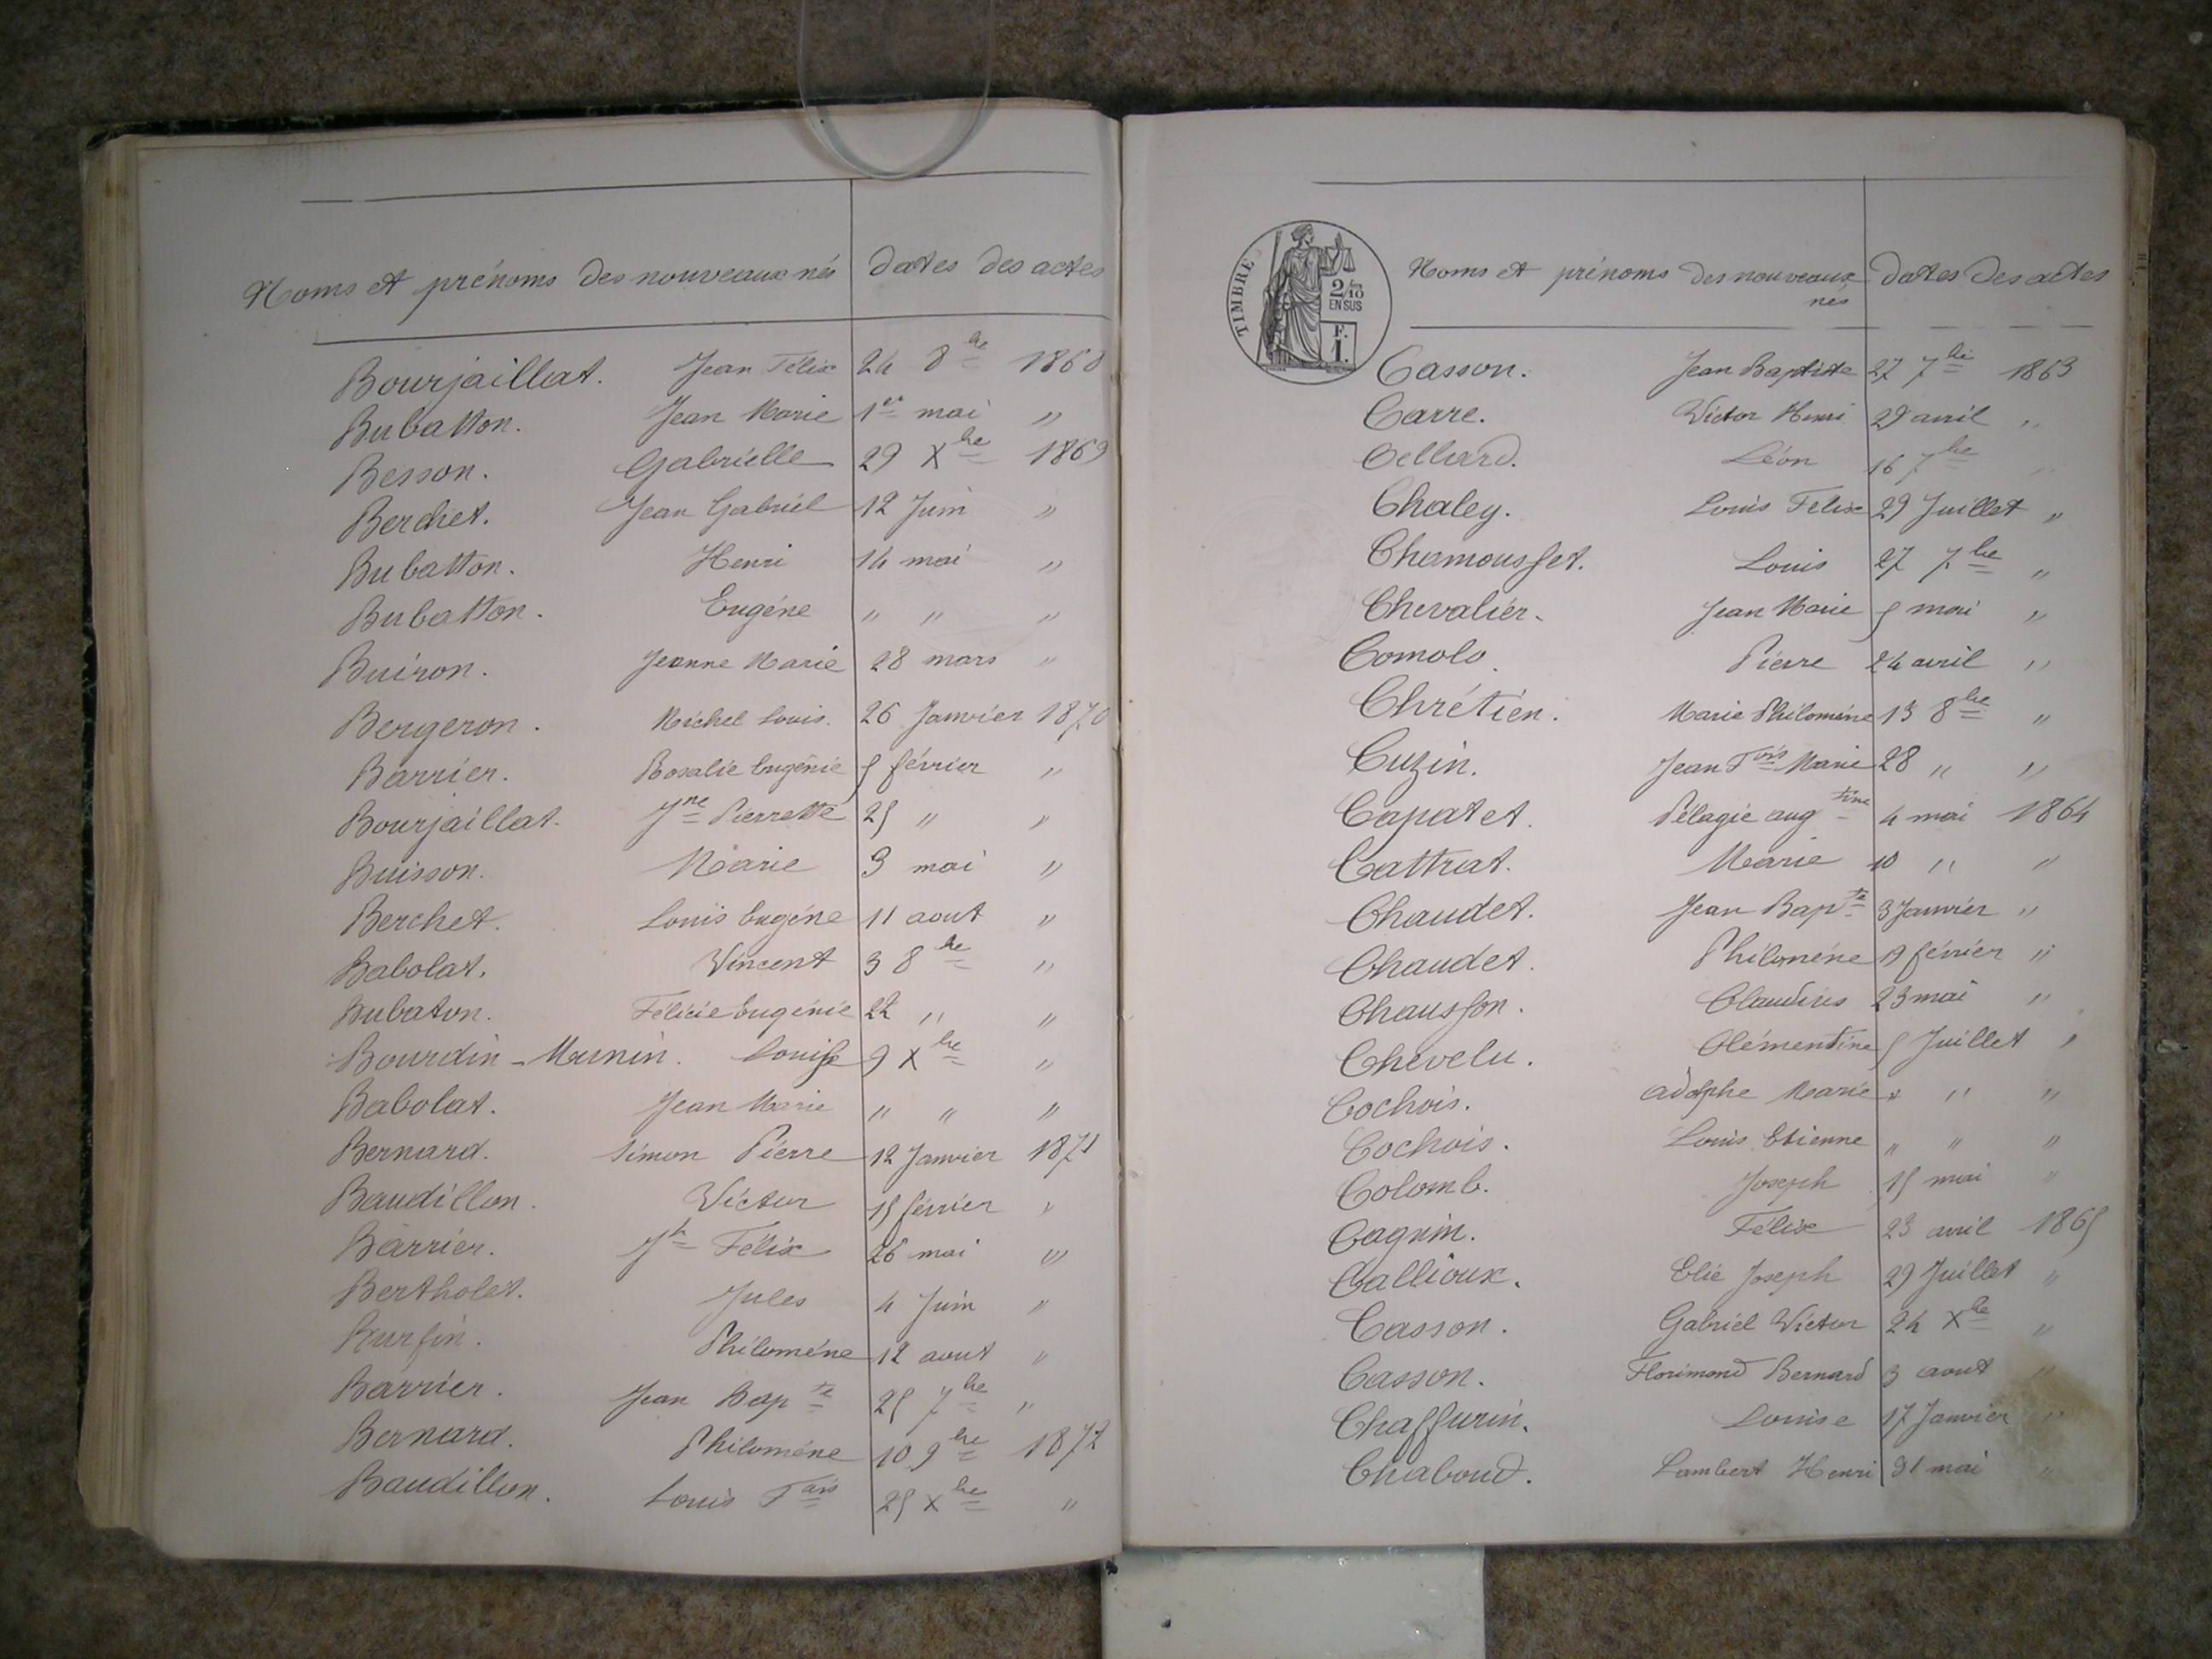 Noms et prénoms des nouveaux nés dates des actes
Bourjaillat. Jean Félix 24 8bre 1868
Bubatton. Jean Marie 1er mai "
Besson. Gabrielle 29 Xbre 1869
Berchet. Jean Gabriel 12 Juin "
Bubatton. Henri 14 mai "
Bubatton. Eugéne " " "
Buiron. Jeanne Marie 28 mars "
Bergeron. Michel Louis. 26 Janvier 1870
Barrier. Rosalie Eugénie 5 février "
Bourjaillat. Jne Pierrette 25 " "
Buisson. Marie 3 mai "
Berchet. Louis Eugéne 11 aout "
Babolat. Vincent 3 8bre "
Bubaton. Félicie Eugénie 22 " "
Bourdin - Marnin. Louise 9 Xbre "
Babolat. Jean Marie " " "
Bernard. Simon Pierre 12 Janvier 1871
Baudillon. Victor 15 février "
Barrier. Jh Félix 26 mai "
Bertholet. Jules 4 Juin "
Burfin. Philoméne 12 aout "
Barrier. Jean Bapte 25 7bre "
Bernard. Philoméne 10 9bre 1872
Baudillon. Louis Fois 25 Xbre "
TIMBRE
2/10
EN SUS
F.
1.
Noms et prénoms des nouveaux dates des actes
nés
Casson. Jean Baptiste 27 7bre 1863
Carre. Victor Henri 29 avril "
Cellard. Léon 16 7bre "
Chaley. Louis Felix 29 Juillet "
Chamousset. Louis 27 7bre "
Chevalier. Jean Marie 5 mai "
Comolo. Pierre 24 avril "
Chrétien. Marie Philoméne 13 8bre "
Cuzin. Jean Fois Marie 28 " "
Capatet. Pélagie augtine 4 mai 1864
Cattrat. Marie 10 " "
Chaudet. Jean Bapte 3 Janvier "
Chaudet. Philoméne 19 février "
Chausson. Claudius 23 mai "
Chevelu. Clémentine 5 Juillet "
Cochois. adolphe Marie " " "
Cochois. Louis Etienne " " "
Colomb. Joseph 15 mai "
Cagnin. Félix 23 avril 1865
Callioux. Elie Joseph 29 Juillet "
Casson. Gabriel Victor 24 Xbre "
Casson. Florimond Bernard 3 aout "
Chaffurin. Louise 17 Janvier "
Chaboud. Lambert Henri 31 mai "